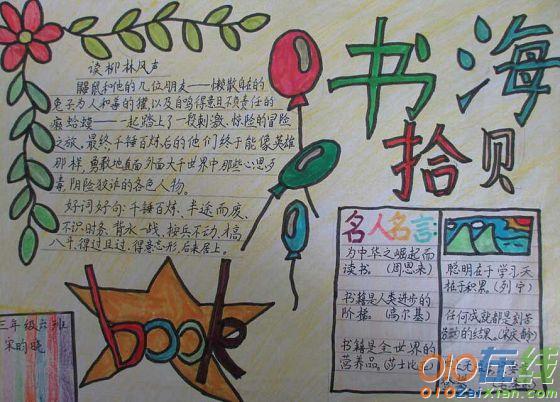 书海
拾贝
读柳林风声
鼹鼠和他的几位朋友——懒散自在的
兔子为人和善的獾,以及自鸣得意且不负责任的
癞蛤蟆——一起踏上了一段刺激、惊险的冒险
之旅。最终,千锤百炼后的他们终于能像英雄
那样,勇敢地直面外面大千世界中那些心思歹
毒,阴险狡诈的各色人物。
好词好句:千锤百炼、半途而废、
不识时务、背水一战、按兵不动、才高
八斗、得过且过、得意忘形、后来居上。
book
三年级六班
宋昀晓
名人名言:
为中华之崛起而
读书。(周恩来)
书籍是人类进步的
阶梯。(高尔基)
书籍是全世界的
营养品。(莎士比亚)
聪明在于学习,天
在于积累。(列宁)
任何成就都是刻苦
劳动的结果。(宋庆龄)
010在线
010zaixian.com